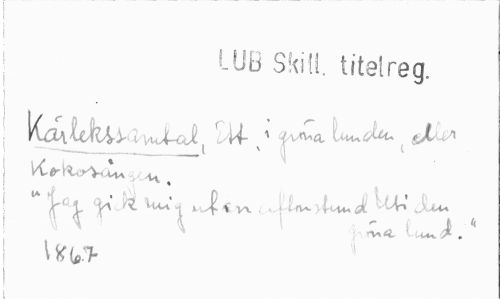 LUB Skill. titelreg.
Kärlekssamtal, Ett, i gröna lunden, eller
Kokosången.
"Jag gick mig ut en aftonstund Uti den
gröna lund."
1867